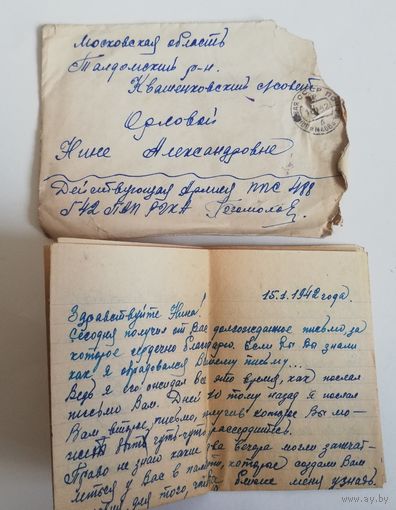 Московская область
Талдомский р-н.
Квашенковский с/совет
Орловой
Нине Александровне
Действующая Армия ППС 488
642 ПАП РГКА Богомолов
15.1.1942 года.
Здравствуйте Нина!
Сегодня получил от Вас долгожданное письмо за
которое сердечно благодарю. Если бы Вы знали
как я обрадовался Вашему письму...
Ведь я его ожидал все это время, как послал
письмо Вам. Дней 10 тому назад я послал
Вам второе письмо, получив которое Вы мо-
жете быть чуть-чуть рассердитесь.
Право не знаю какие два вечера могли запечат-
литься у Вас в памяти, которые создали Вам
для того, чтобы ближе меня узнать.
ay.by